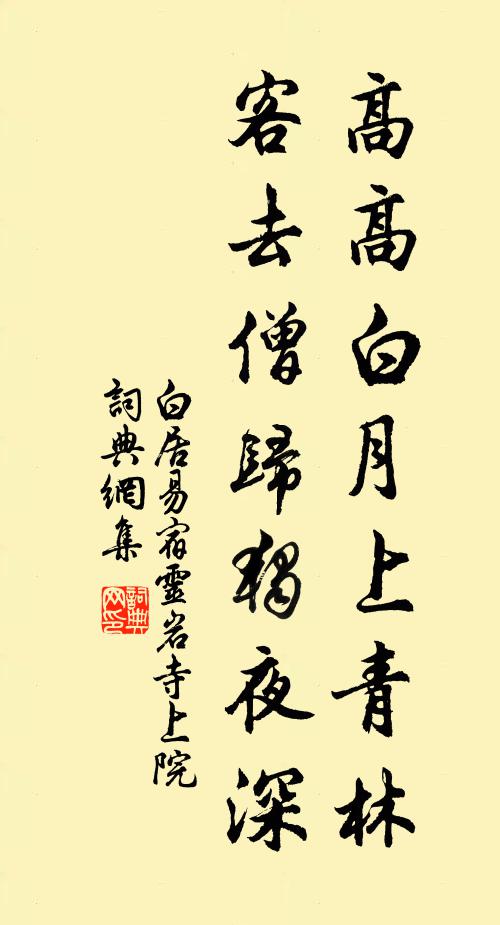 高高白月上青林
客去僧歸獨夜深
白居易宿靈岩寺上院
詞典網集
詞典
网印